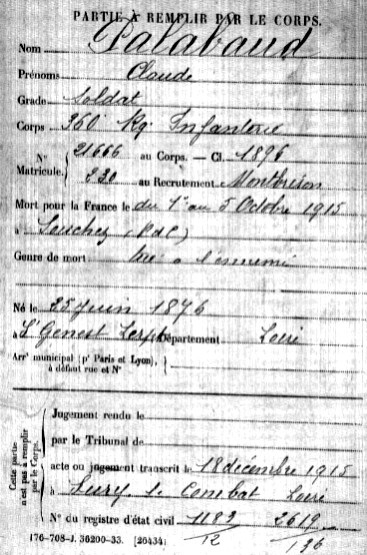 PARTIE À REMPLIR PAR LE CORPS.
Nom Palabaud
Prénoms Claude
Grade Soldat
Corps 360e Rg Infanterie
N° Matricule. { 21666 au Corps. — Cl. 1896
230 au Recrutement Montbrison
Mort pour la France le du 1er au 5 Octobre 1915
à Souchez (PdC)
Genre de mort tué à l'ennemi
Né le 25 juin 1876
à St Genest Lerpt Département Loire
Arrt municipal (pr Paris et Lyon), à défaut rue et N°
Cette partie n'est pas à remplir par le Corps.
Jugement rendu le
par le Tribunal de
acte ou jugement transcrit le 18 décembre 1915
à Sury le Comtat Loire
N° du registre d'état civil 1183/12 2619/196
176-708-J. 36200-33. [26434]